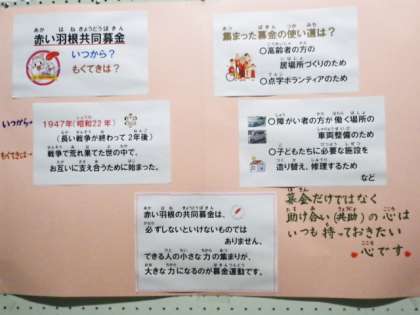 赤い羽根共同募金
いつから？
もくてきは？
いつから→
1947年（昭和22年）
（長い戦争が終わって2年後）
もくてきは→
戦争で荒れ果てた世の中で、
お互いに支え合うために始まった。
集まった募金の使い道は？
〇高齢者の方の
居場所づくりのため
〇点字ボランティアのため
〇障がい者の方が働く場所の
車両整備のため
〇子どもたちに必要な施設を
造り替え、修理するため
など
赤い羽根の共同募金は、
必ずしないといけないものでは
ありません。
できる人の小さな力の集まりが、
大きな力になるのが募金運動です。
募金だけではなく
助け合い（共助）の心は
いつも持っておきたい
心です。